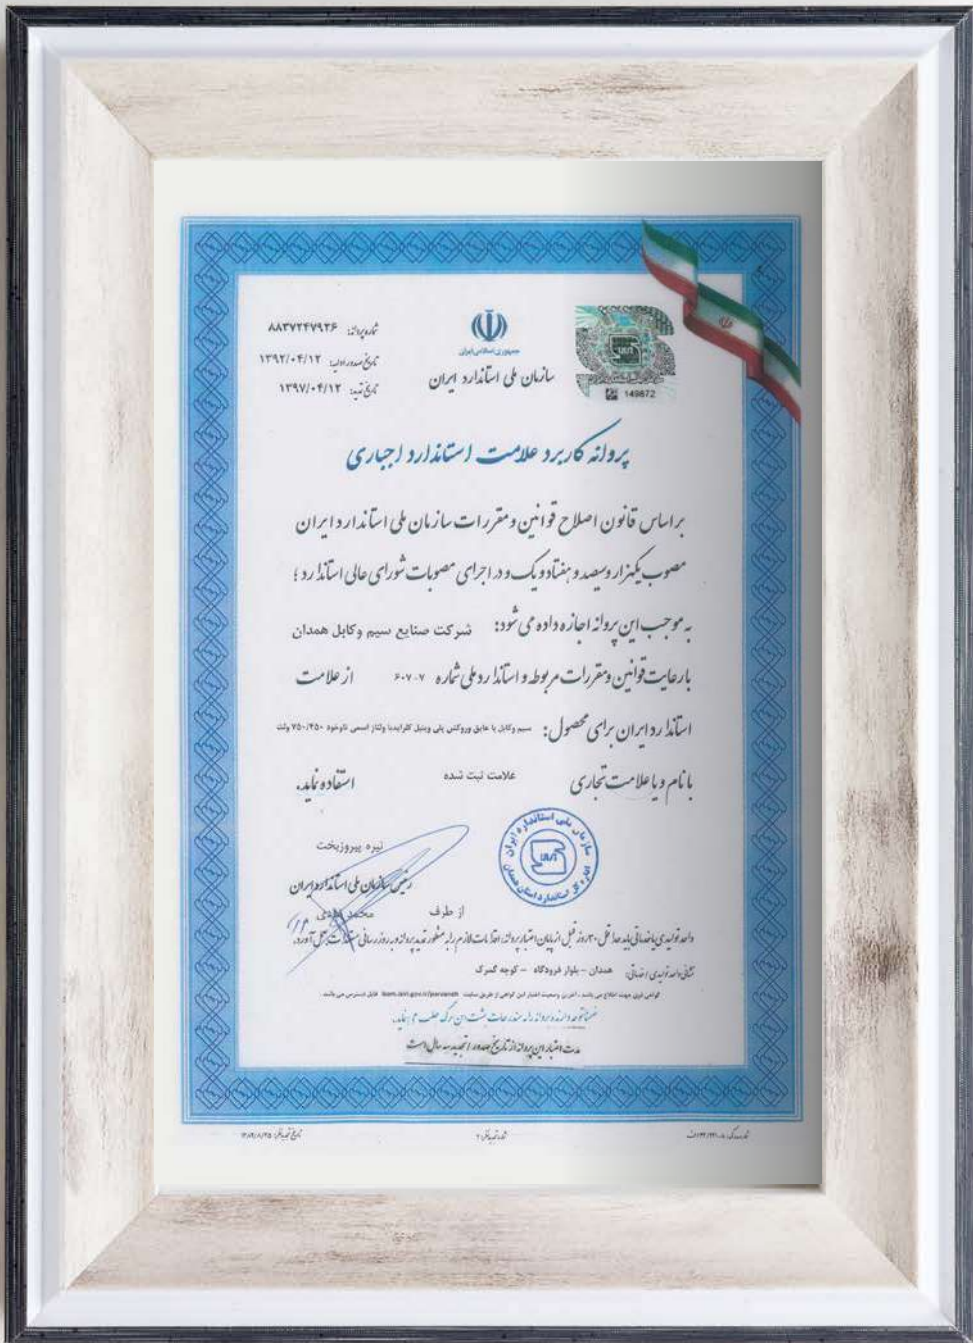 جمهوری اسلامی ایران
سازمان ملی استاندارد ایران
149672
شماره پروانه: ۸۸۳۷۲۴۷۹۲۶
تاریخ صدور اولیه: ۱۳۹۲/۰۴/۱۲
تاریخ تمدید: ۱۳۹۷/۰۴/۱۲
پروانه کاربرد علامت استاندارد اجباری
براساس قانون اصلاح قوانین و مقررات سازمان ملی استاندارد ایران
مصوب یکهزار و سیصد و هفتاد و یک و در اجرای مصوبات شورای عالی استاندارد ؛
به موجب این پروانه اجازه داده می شود: شرکت صنایع سیم وکابل همدان
با رعایت قوانین و مقررات مربوطه و استاندارد ملی شماره ۶۰۷-۷ از علامت
استاندارد ایران برای محصول: سیم وکابل با عایق وروکش پلی وینیل کلراید با ولتاژ اسمی تاوخود ۷۵۰/۴۵۰ ولت
با نام و یا علامت تجاری علامت ثبت شده استفاده نماید.
سازمان ملی استاندارد ایران
اداره کل استاندارد استان همدان
نیره پیروزبخت
رئیس سازمان ملی استاندارد ایران
از طرف محمد
واحد تولیدی یا خدماتی باید حداقل ۳۰ روز قبل از پایان اعتبار پروانه، اقدامات لازم را به منظور تمدید پروانه و بروز رسانی مستندات بعمل آورد.
نشانی واحد تولیدی / خدماتی: همدان - بلوار فرودگاه - کوچه گمرک
گواهی فوق جهت اطلاع می باشد ، آخرین وضعیت اعتبار این گواهی از طریق سایت قابل دسترس می باشد .
ضمناً توجه دارنده پروانه را به مندرجات پشت این برگ جلب می نماید.
مدت اعتبار این پروانه از تاریخ صدور / تمدید سه سال است
شماره تجدیدنظر: ۲
تاریخ تجدیدنظر: ۱۳۸۹/۸/۲۵